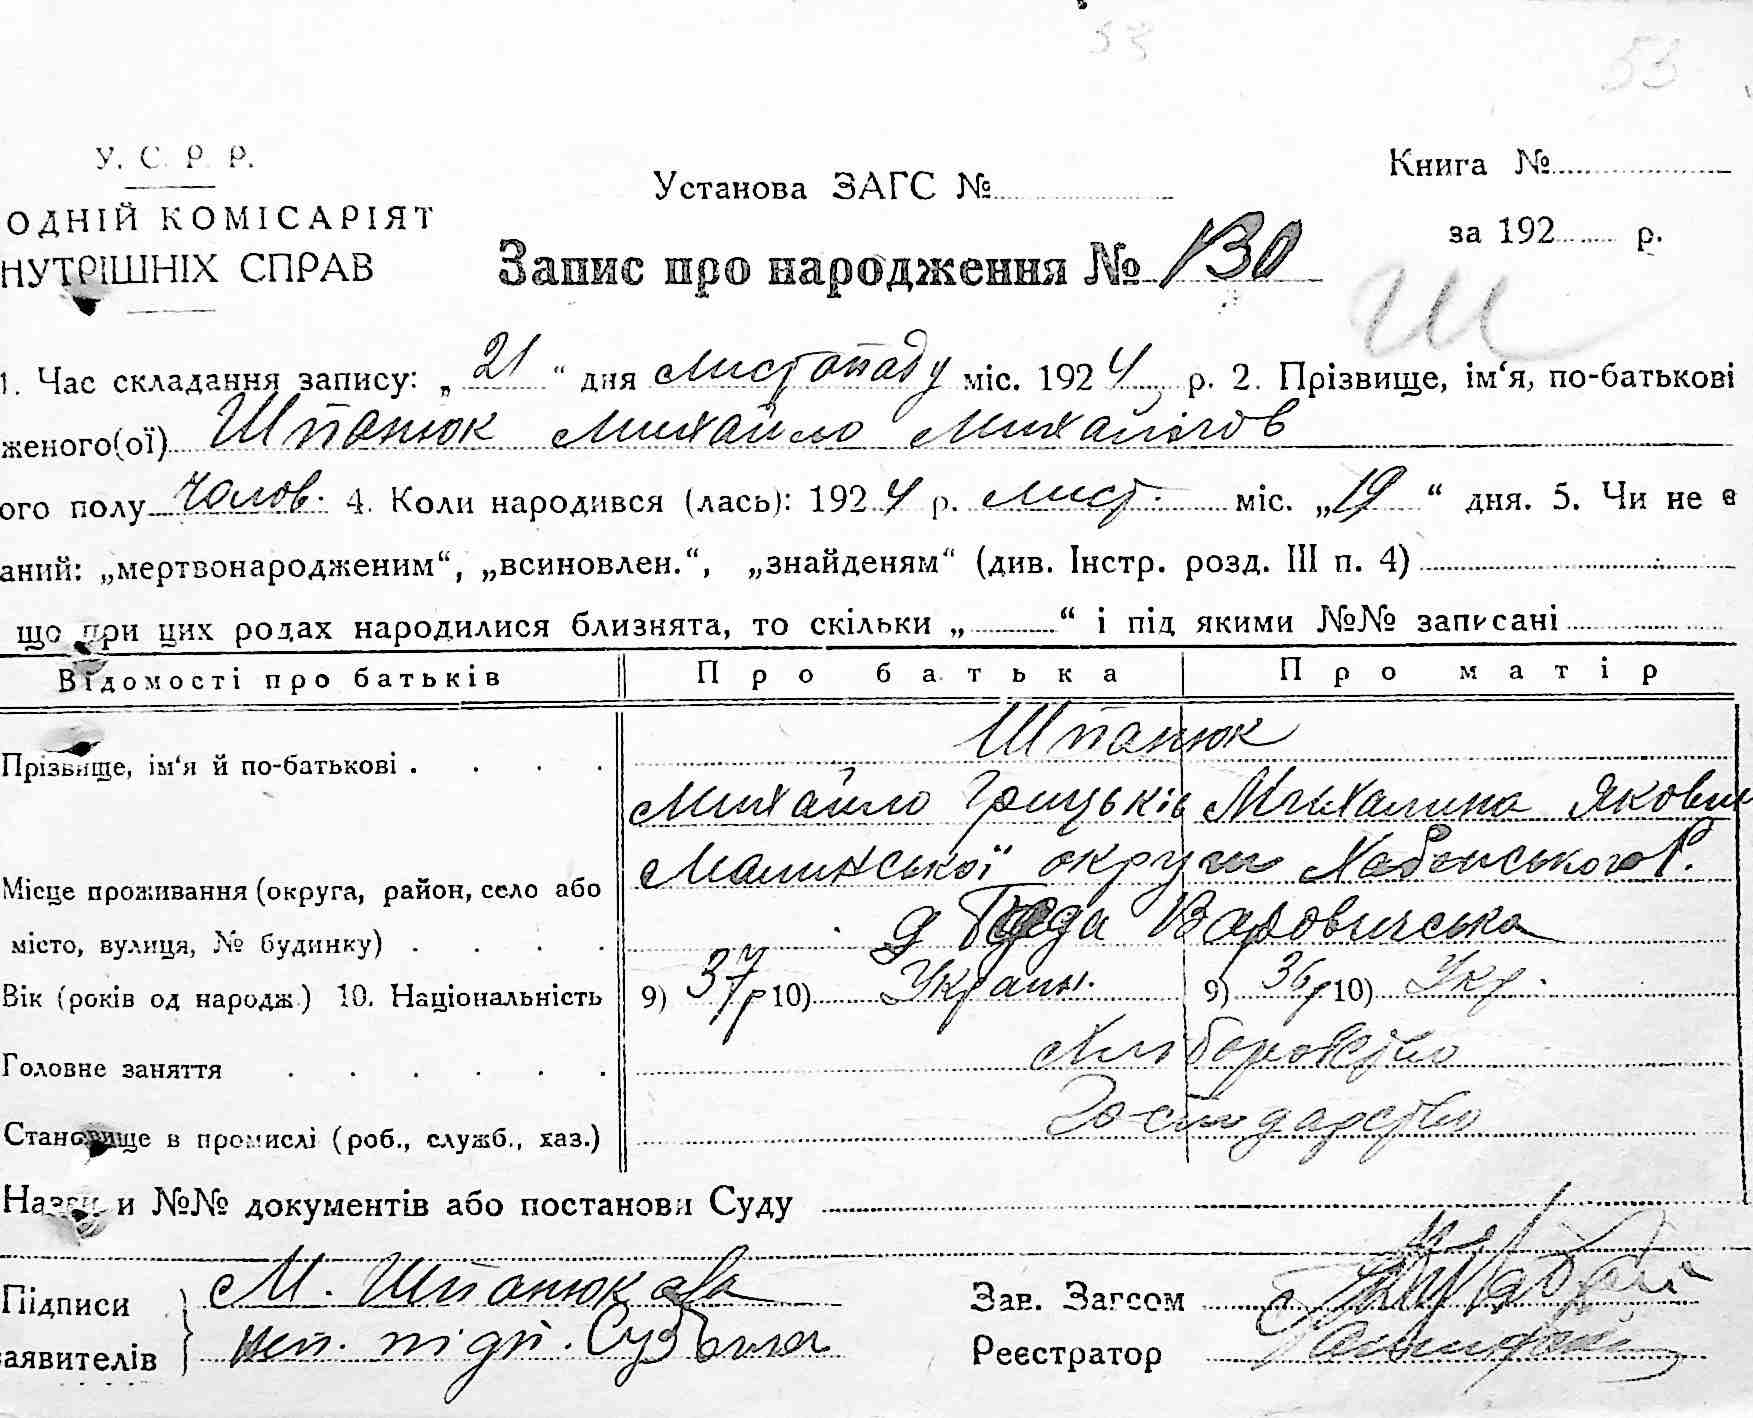 53
53
У. С. Р. Р.
ОДНІЙ КОМІСАРІЯТ
НУТРІШНІХ СПРАВ
Установа ЗАГС №
Книга №
за 192 р.
Запис про народження № 130
Ш
1. Час складання запису: „21“ дня листопаду міс. 1924 р. 2. Прізвище, ім‘я, по-батькові
женого(ої) Шпанюк Михайло Михайлов
ого полу чолов. 4. Коли народився (лась): 1924 р. лист. міс. „19“ дня. 5. Чи не є
аний: „мертвонародженим“, „всиновлен.“, „знайденям“ (див. Інстр. розд. III п. 4)
що при цих родах народилися близнята, то скільки „ “ і під якими №№ записані
Відомості про батьків Про батька Про матір
Шпанюк
Прізвище, ім‘я й по-батькові
Михайло Грицьків Михалина Якови
Малинської округи Хабенського р.
Місце проживання (округа, район, село або
місто, вулиця, № будинку) Буда Варовичська
Вік (років од народж.) 10. Національність 9) 37 р 10) Украин. 9) 36 р 10) Укр.
Головне заняття Хліборобство
Становище в промислі (роб., служб., хаз.) Господарство
Назви и №№ документів або постанови Суду
Підписи М. Шпанюк Зав. Загсом
заявителів неп. підп. Реєстратор